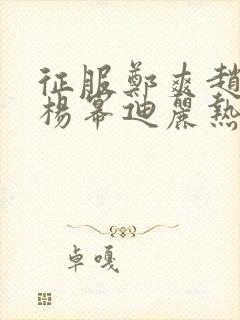 征服鄭爽趙
楊冪迪麗熱
卓嘎